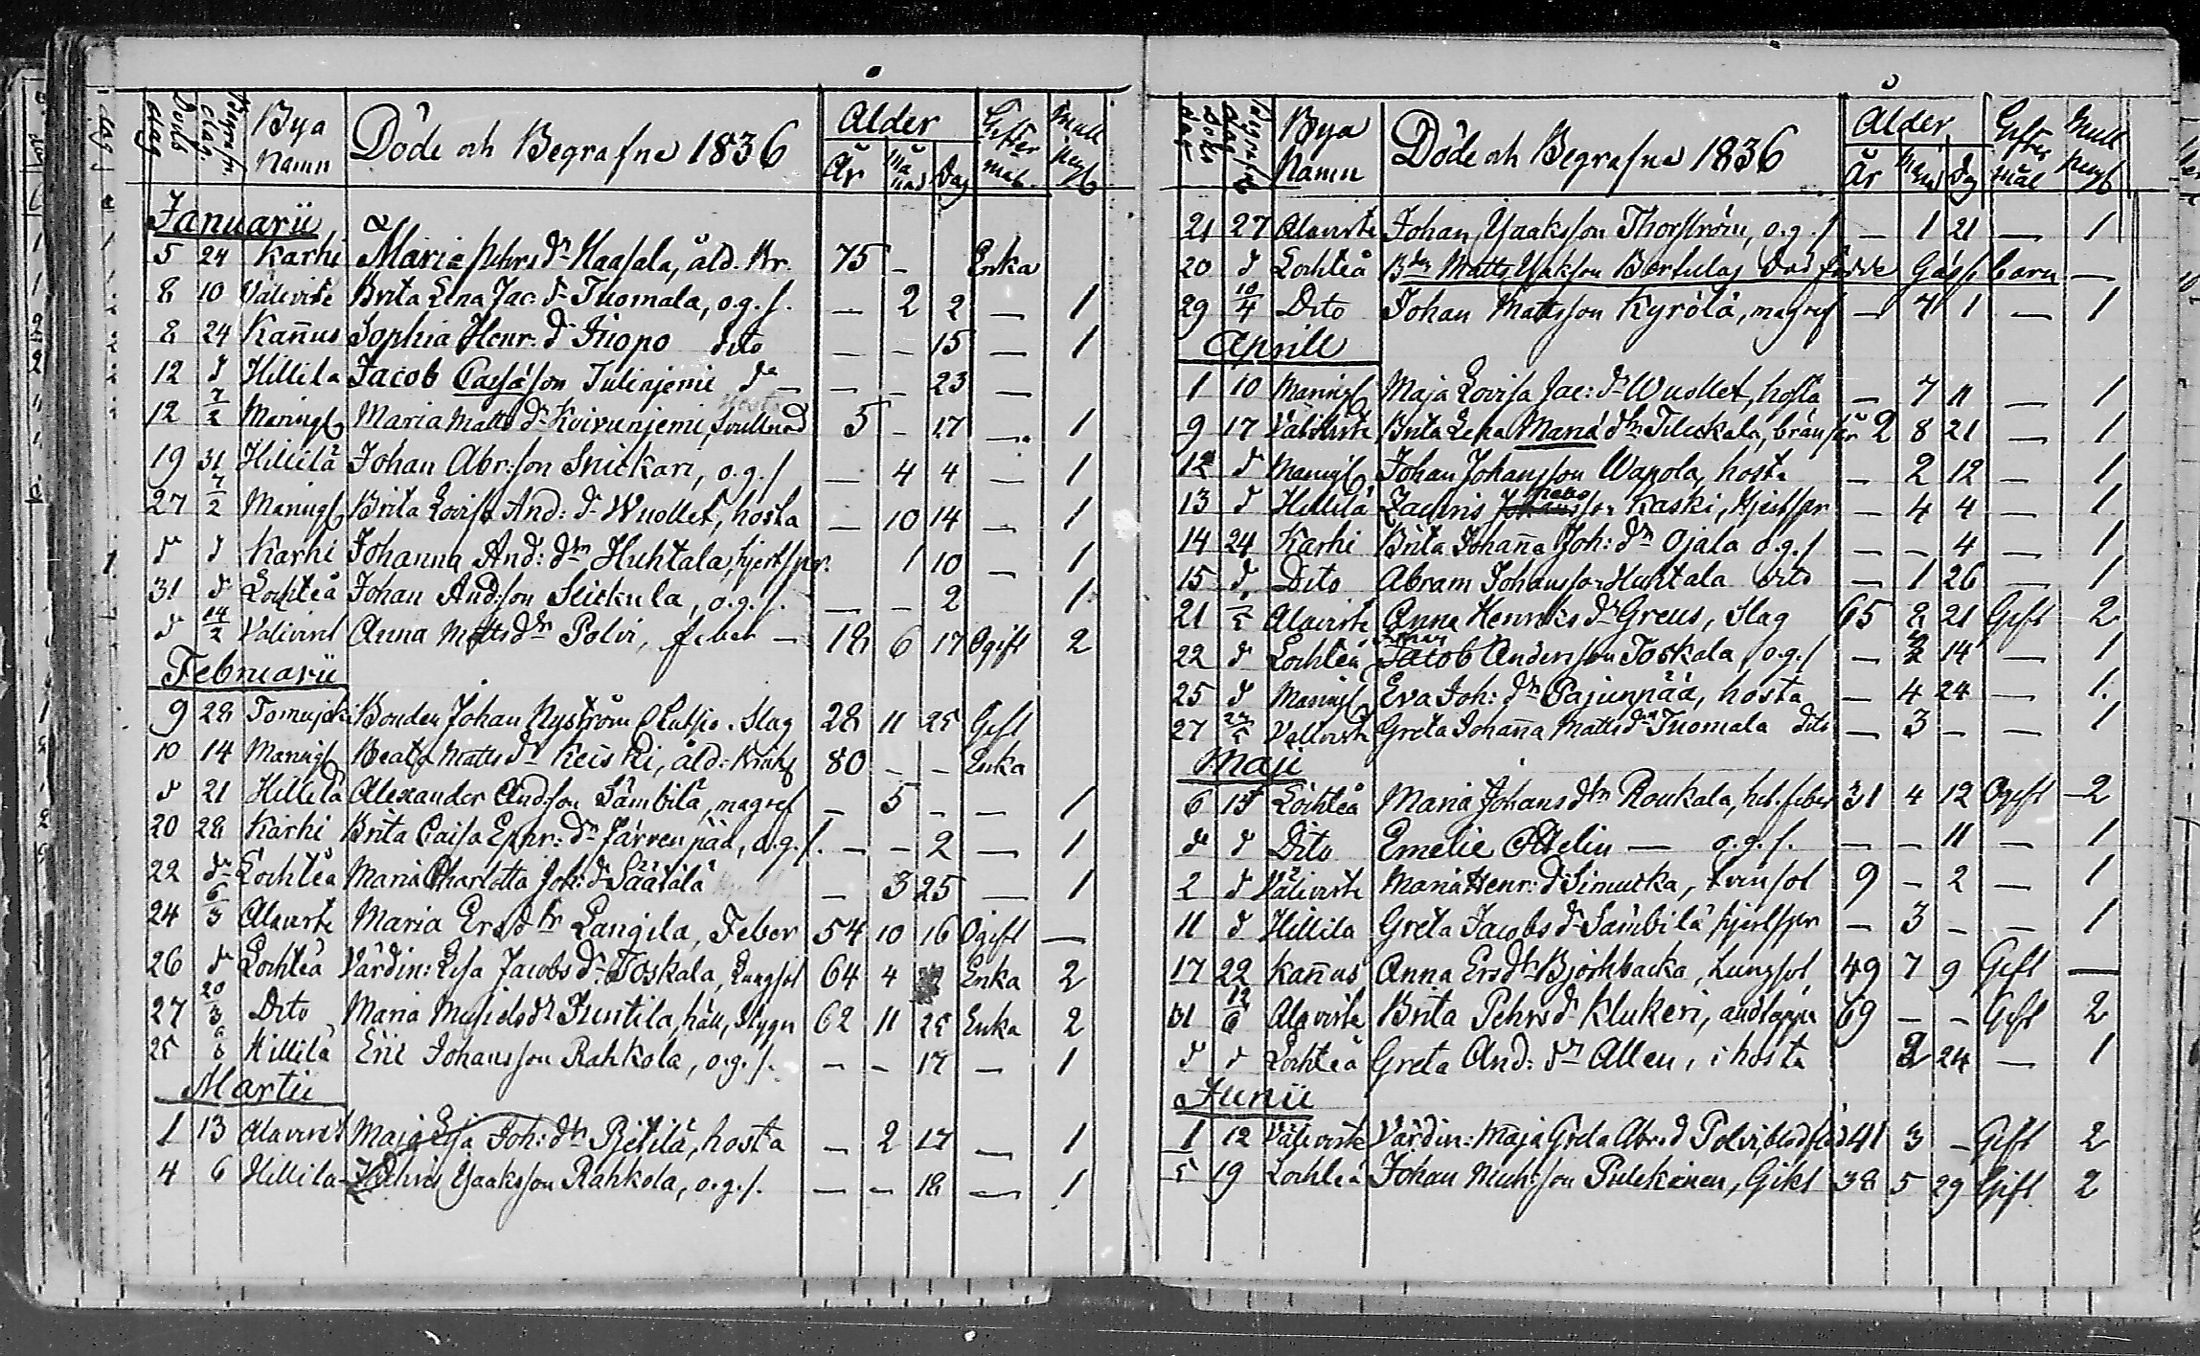 Döds dag Begrafn. dag. Bya Namn Döde och Begrafne 1836 Ålder År Månad Dag Giftermål Mull peng
Januarii
5 24 Karhi Maria Pehrs dr Haasala, åld. Br. 75 – Enka
8 10 Välivirte Brita Lena Jac. dr Tuomala, o.g.s. – 2 2 – 1
8 24 Kañus Sophia Henr: dr Filppo dito – – 15 – 1
12 d Hillilä Jacob Cajsason Tulinjemi do – – 23 –
12 7/2 Maningb Maria Matts dr Koivunjemi, svullnad 5 – 17 – 1
19 31 Hillilä Johan Abr:son Snickari, o.g.s – 4 4 – 1
27 7/2 Maningb Brita Lovisa And: dr Wuollet, hosta – 10 14 – 1
d d Karhi Johanna And: dtr Huhtala, hjertspr. 1 10 – 1
31 d Lochteå Johan And:son Slickula, o.g.s. – – 2 1
d 14/2 Valivirt Anna Matts dr Polvi, feber – 18 6 17 Ogift 2
Februarii
9 28 Tomujoki Bonden Johan Nyström Slag 28 11 25 Gift
10 14 Maningb Beata Matts dr Keiski, åld. 80 – – Enka
d 21 Hillilä Alexander And:son Sämbilä, magref – 5 – – 1
20 28 Karhi Brita Caisa Ephr: dr Järvenpää, o.g.s. – – 2 – 1
22 d Lochteå Maria Charlotta Joh: dr Säätälä – 3 25 – 1
24 6/3 Alavirte Maria Ers dtr Langila, Feber 54 10 16 Ogift –
26 d Lochteå Värdin: Lisa Jacobs dr Toskala, Lungsot 64 4 Enka 2
27 20/3 Dito Maria dr Juntila, håll, stygn 62 11 25 Enka 2
25 6/3 Hillilä Eric Johansson Rahkola, o.g.s. – – 17 – 1
Martii
1 13 Alavirt Maja Lisa Joh: dtr Pietilä, hosta – 2 17 – 1
4 6 Hillila Isaaksson Rahkola, o.g.s. – – 18 – 1
Döds dag Begrafn. dag Bya Namn Döde och Begrafne 1836 Ålder År Månad Dag Giftermål Mull peng
21 27 Alavirte Johan Isaaksson Thorström, o.g.s – 1 21 – 1
20 d Lochteå Bdn Matts Isaksson Bertulas Död födde Gåsse barn –
29 10/4 Dito Johan Mattsson Kyrölä, magref – 7 1 – 1
Aprill
1 10 Maningb Maja Lovisa Jac: dr Wuollet, hosta – 7 11 – 1
9 17 Välivirte Brita Lena Maria dtr Tiluskala, brånsår 2 8 21 – 1
12 d Maningb Johan Johansson Wapola, hosta – 2 12 – 1
13 d Hillilä Zachris Kaski, Hjertspr – 4 4 – 1
14 24 Karhi Brita Johaña Joh: dr Ojala o.g.s – – 4 – 1
15 d. Dito Abram Johansson Huhtala dito – 1 26 – 1
21 Alavirte Anna Henriks dr Greus, Slag 65 8 21 Gift 2
22 d Lochteå Jacob Andersson Toskala, o.g.s – 2 14 – 1
25 d Maningb Eva Joh: dtr Pajunpää, hosta – 4 24 – 1.
27 24/5 Vallivirte Greta Johaña Matts dtr Tuomala dito – 3 – – 1
Maji
6 15 Lochteå Maria Johans dtr Roukala, het. feber 31 4 12 Ogift 2
d d Dito Emelie Ottelin – o.g.s. – – 11 – 1
2 d Välivirte Maria Henr: dr Simuska, tvinsot 9 – 2 – 1
11 d Hillila Greta Jacobs dr Sämbilä hjertspr – 3 – – 1
17 22 Kañus Anna Ers dtr Björkbacka, Lungsot 49 7 9 Gift –
31 12/6 Alavirte Brita Pehrs dr Klukeri, andtäppa 69 – – Gift 2
d d Lochteå Greta And: dtr Allen, i hosta 2 24 – 1
Junii
1 12 Välivirte Värdin: Maja Greta Abr. d Polvi, blodflöd 41 3 – Gift 2
5 19 Lochteå Johan Mich:son Pulckinen, Gikt 38 5 29 Gift 2